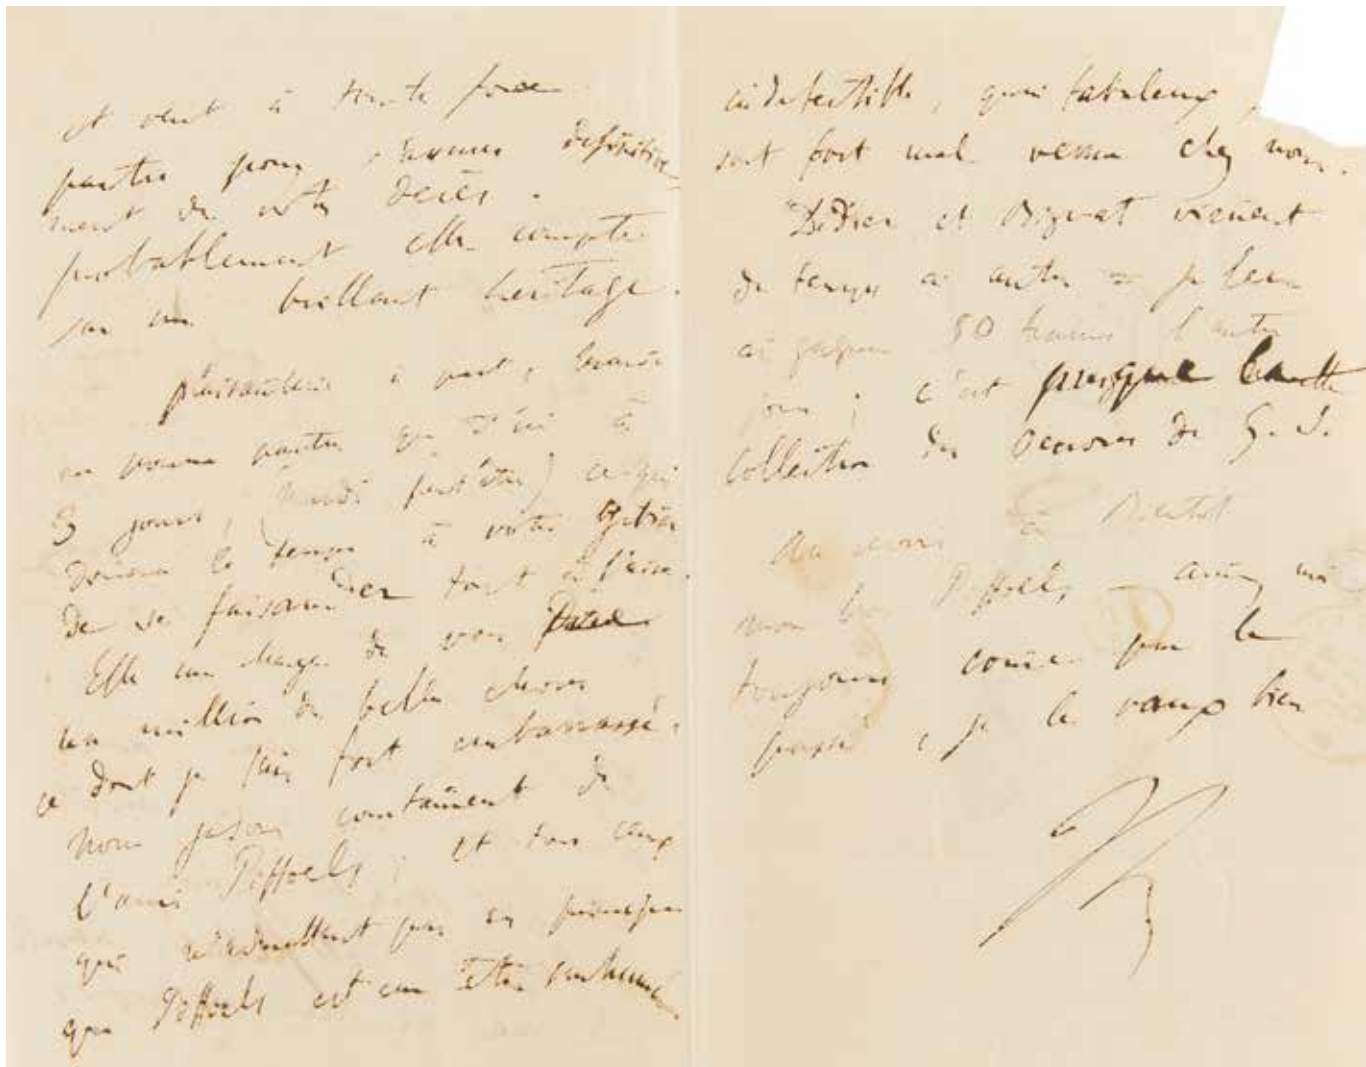 et veut à toute force
partir pour s'assurer définitive
ment de votre décès.
probablement elle compte
sur un brillant héritage.
plaisanterie à part,
ne pourra partir que d'ici à
3 jours, (mardi peut être) ce qui
donnera le temps à votre gibier
de se faisander tout à l'aise.
Elle me charge de vous
un million de belles choses
ce dont je suis fort embarrassé.
Nous jasons constament de
l'ami Piffoels, et tous ceux
qui n'admettent pas en principe
que Piffoels est un être
indefectible, quasi fabuleux,
sont fort mal venus chez nous.
Didier et Bignat vienent
de temps à autre = je leur
ai gagné 50 francs l'autre
jour, c'est presque la
collection des Oeuvres de G. S.
Au revoir à bientôt
mon bon Piffoels — aimez moi
toujours come par le
passé, je le vaux bien